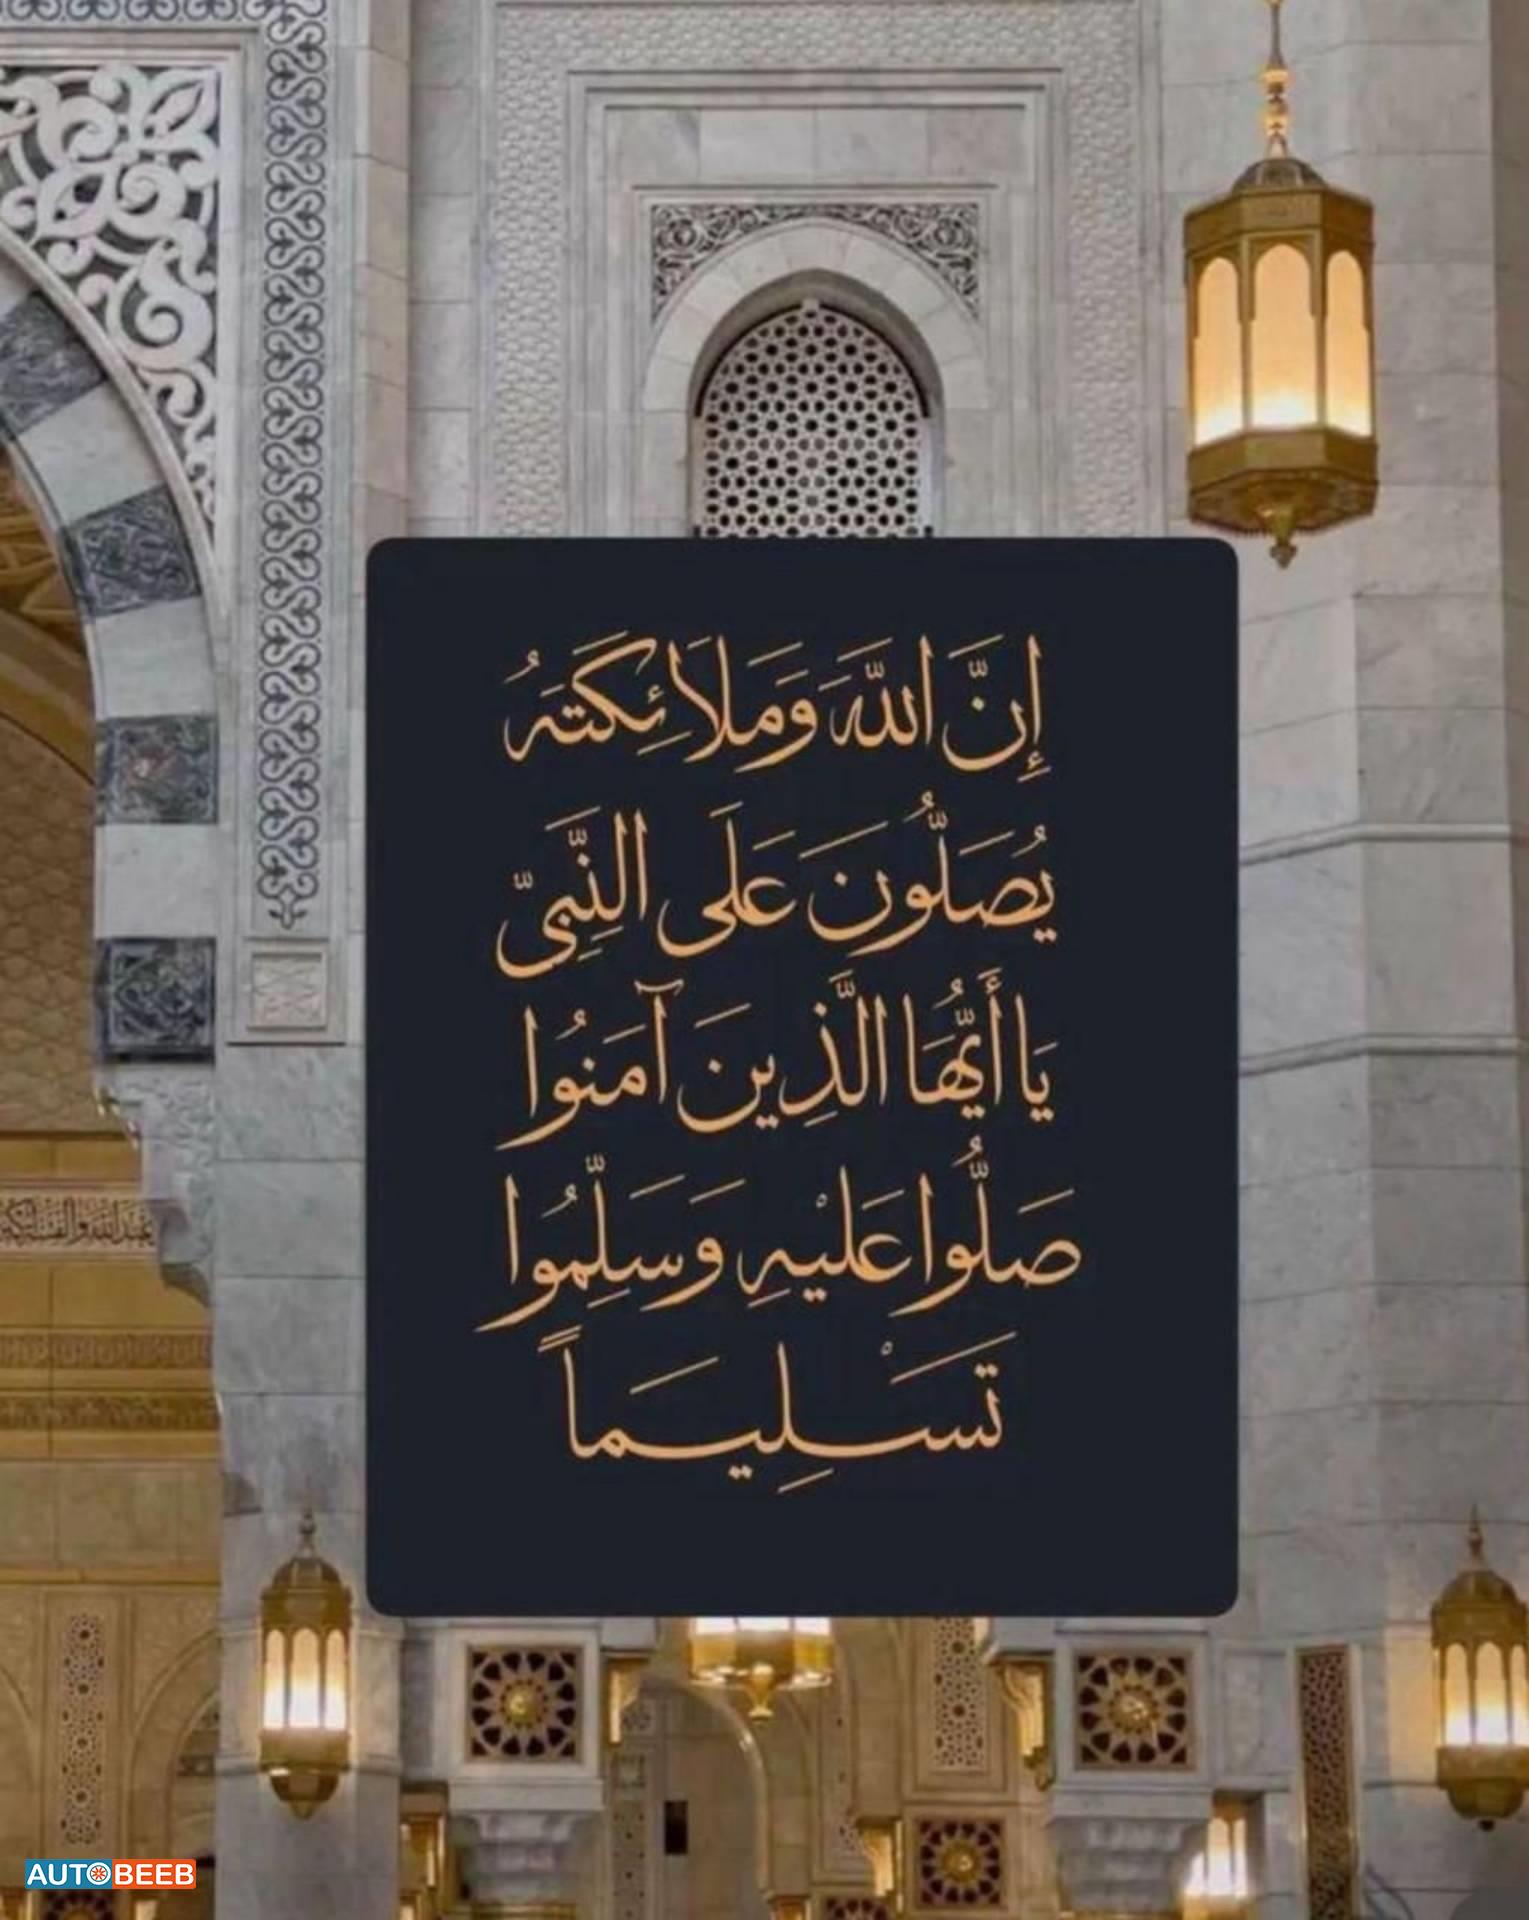 إِنَّ اللَّهَ وَمَلَائِكَتَهُ
يُصَلُّونَ عَلَى النَّبِيِّ
يَا أَيُّهَا الَّذِينَ آمَنُوا
صَلُّوا عَلَيْهِ وَسَلِّمُوا
تَسْلِيمَاً
AUTOBEEB